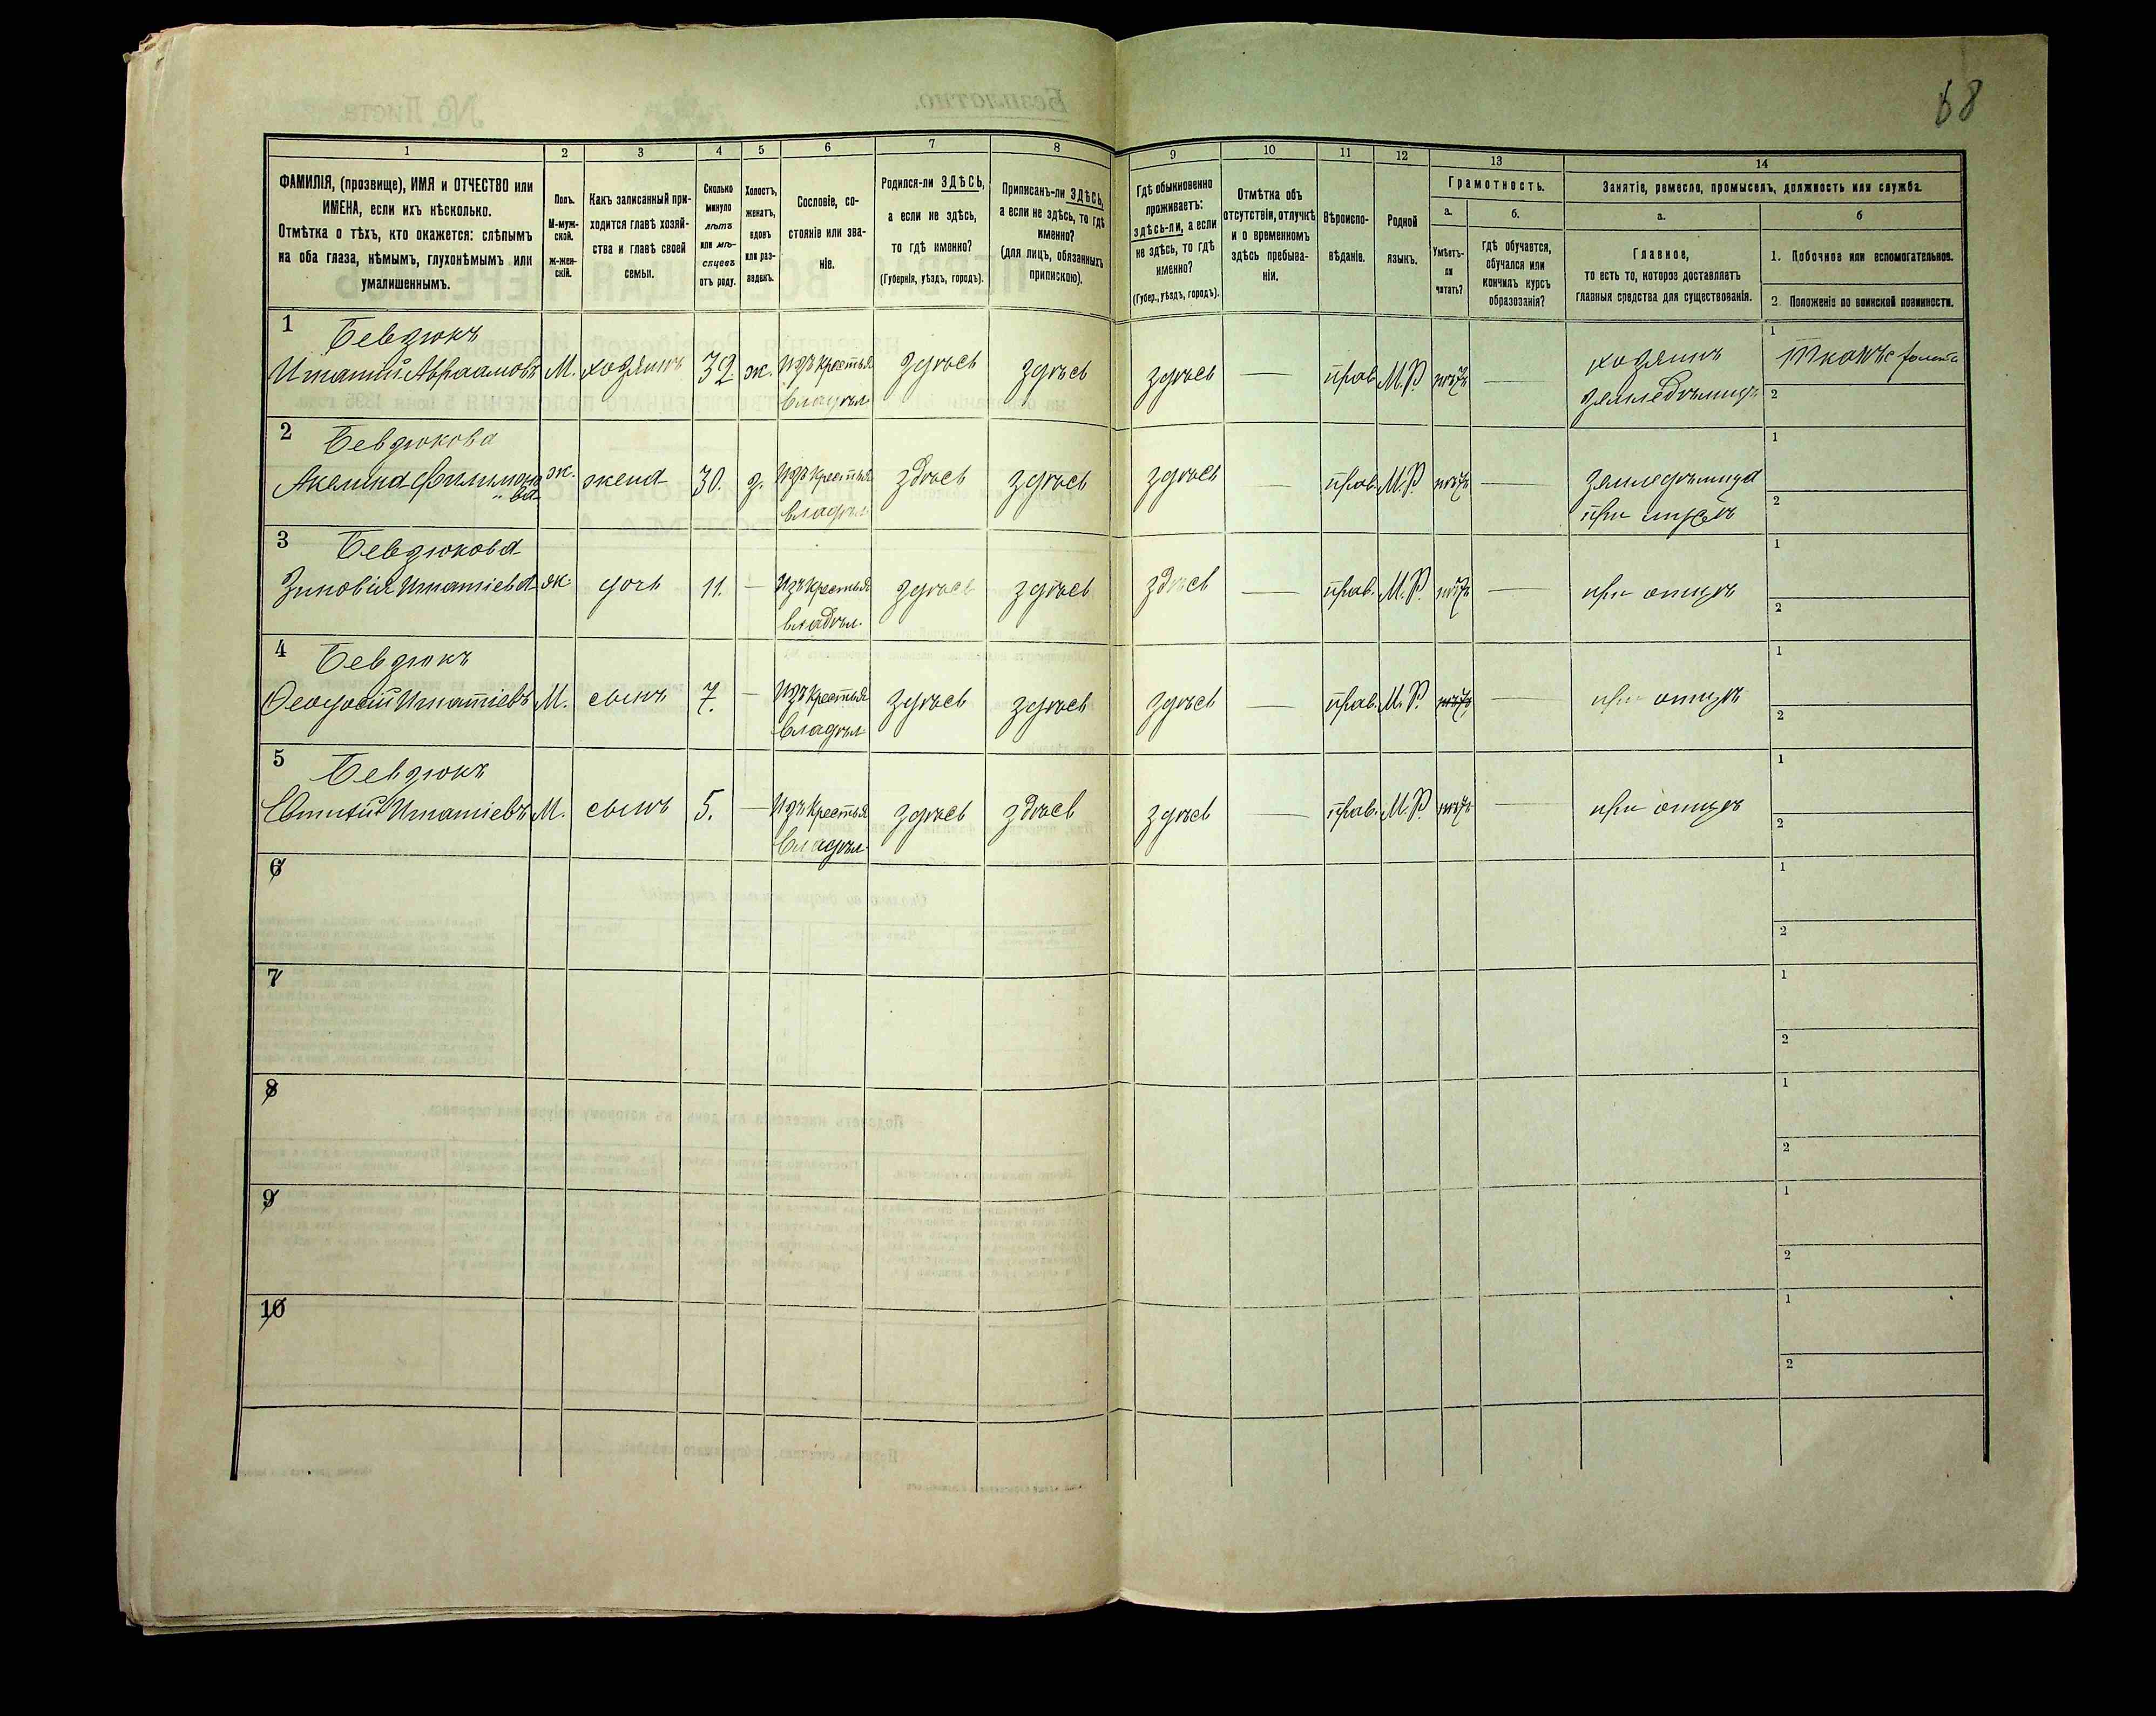 68
1 2 3 4 5 6 7 8 9 10 11 12 13 14
ФАМИЛІЯ, (прозвище), ИМЯ и ОТЧЕСТВО или
ИМЕНА, если ихъ нѣсколько.
Отмѣтка о тѣхъ, кто окажется: слѣпымъ
на оба глаза, нѣмымъ, глухонѣмымъ или
умалишеннымъ.
Полъ.
М-муж-
ской.
ж-жен-
скій.
Какъ записанный при-
ходится главѣ хозяй-
ства и главѣ своей
семьи.
Сколько
минуло
лѣтъ
или мѣ-
сяцевъ
отъ роду.
Холостъ,
женатъ,
вдовъ
или раз-
веденъ.
Сословіе, со-
стояніе или зва-
ніе.
Родился-ли ЗДѢСЬ,
а если не здѣсь,
то гдѣ именно?
(Губернія, уѣздъ, городъ).
Приписанъ-ли ЗДѢСЬ,
а если не здѣсь, то гдѣ
именно?
(для лицъ, обязанныхъ
припискою).
Гдѣ обыкновенно
проживаетъ:
здѣсь-ли, а если
не здѣсь, то гдѣ
именно?
(Губер., уѣздъ, городъ).
Отмѣтка объ
отсутствіи, отлучкѣ
и о временномъ
здѣсь пребыва-
ніи.
Вѣроиспо-
вѣданіе.
Родной
языкъ.
Грамотность.
а.
Умѣетъ-
ли
читать?
б.
гдѣ обучается,
обучался или
кончилъ курсъ
образованія?
Занятіе, ремесло, промыселъ, должность или служба.
а.
Главное,
то есть то, которое доставляетъ
главныя средства для существованія.
б
1. Побочное или вспомогательное.
2. Положеніе по воинской повинности.
1 Бевдюкъ
Игнатій Авраамовъ М. хозяинъ 32 ж. Изъ крестья здѣсь здѣсь здѣсь — прав. М.Р. нѣтъ — хозяинъ 1
владѣл. земледѣлецъ 2
2 Бевдюкова
Акелина ж. жена 30. з. Изъ крестья здѣсь здѣсь здѣсь прав. М.Р. нѣтъ — 1
владѣл. при 2
3 Бевдюкова
Зиновія Игнатіева ж. дочь 11. — Изъ крестья здѣсь здѣсь здѣсь — прав. М.Р. нѣтъ — при отцѣ 1
владѣл. 2
4 Бевдюкъ
Феодосій Игнатіевъ М. сынъ 7. — Изъ крестья здѣсь здѣсь здѣсь — прав. М.Р. нѣтъ — при отцѣ 1
владѣл. 2
5 Бевдюкъ
Евтихій Игнатіевъ М. сынъ 5. — Изъ крестья здѣсь здѣсь здѣсь — прав. М.Р. нѣтъ — при отцѣ 1
владѣл. 2
6 1
2
7 1
2
8 1
2
9 1
2
10 1
2